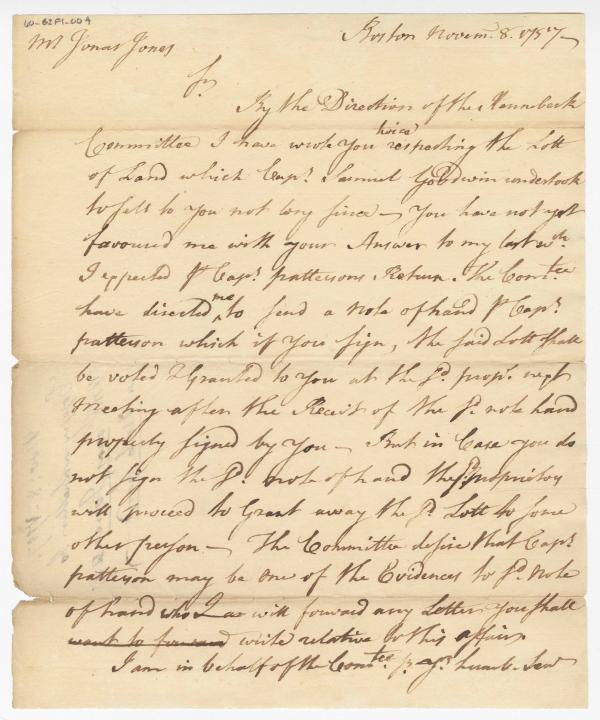 60-B2F1-004
Boston Novem. 8. 1757
Mr Jonas Jones
Sr
By the Direction of the Kennebeck
Committee I have wrote you twice respecting the Lott
of Land which Capt. Samuel Goodwin undertook
to sell to you not long since - You have not yet
favoured me with your Answer to my last wch
I expected pr Capt. pattersons Return. The Comtee
have directed me to send a note of hand pr Capt.
patterson which if you sign, the said Lott shall
be voted & Granted to you at the sd. propr. next
Meeting after the Receit of the sd. note hand
properly signed by you - But in Case you do
not sign the sd. note of hand the sd. proprietors
will proceed to Grant away the sd. Lott to some
other person - The Committee desire that Capt.
patterson may be one of the Evidences to sd. Note
of hand who will forward any Letter you shall
want to forward write relative to this affair
I am in behalf of the Comtee. Sr. yr. humb. Serv